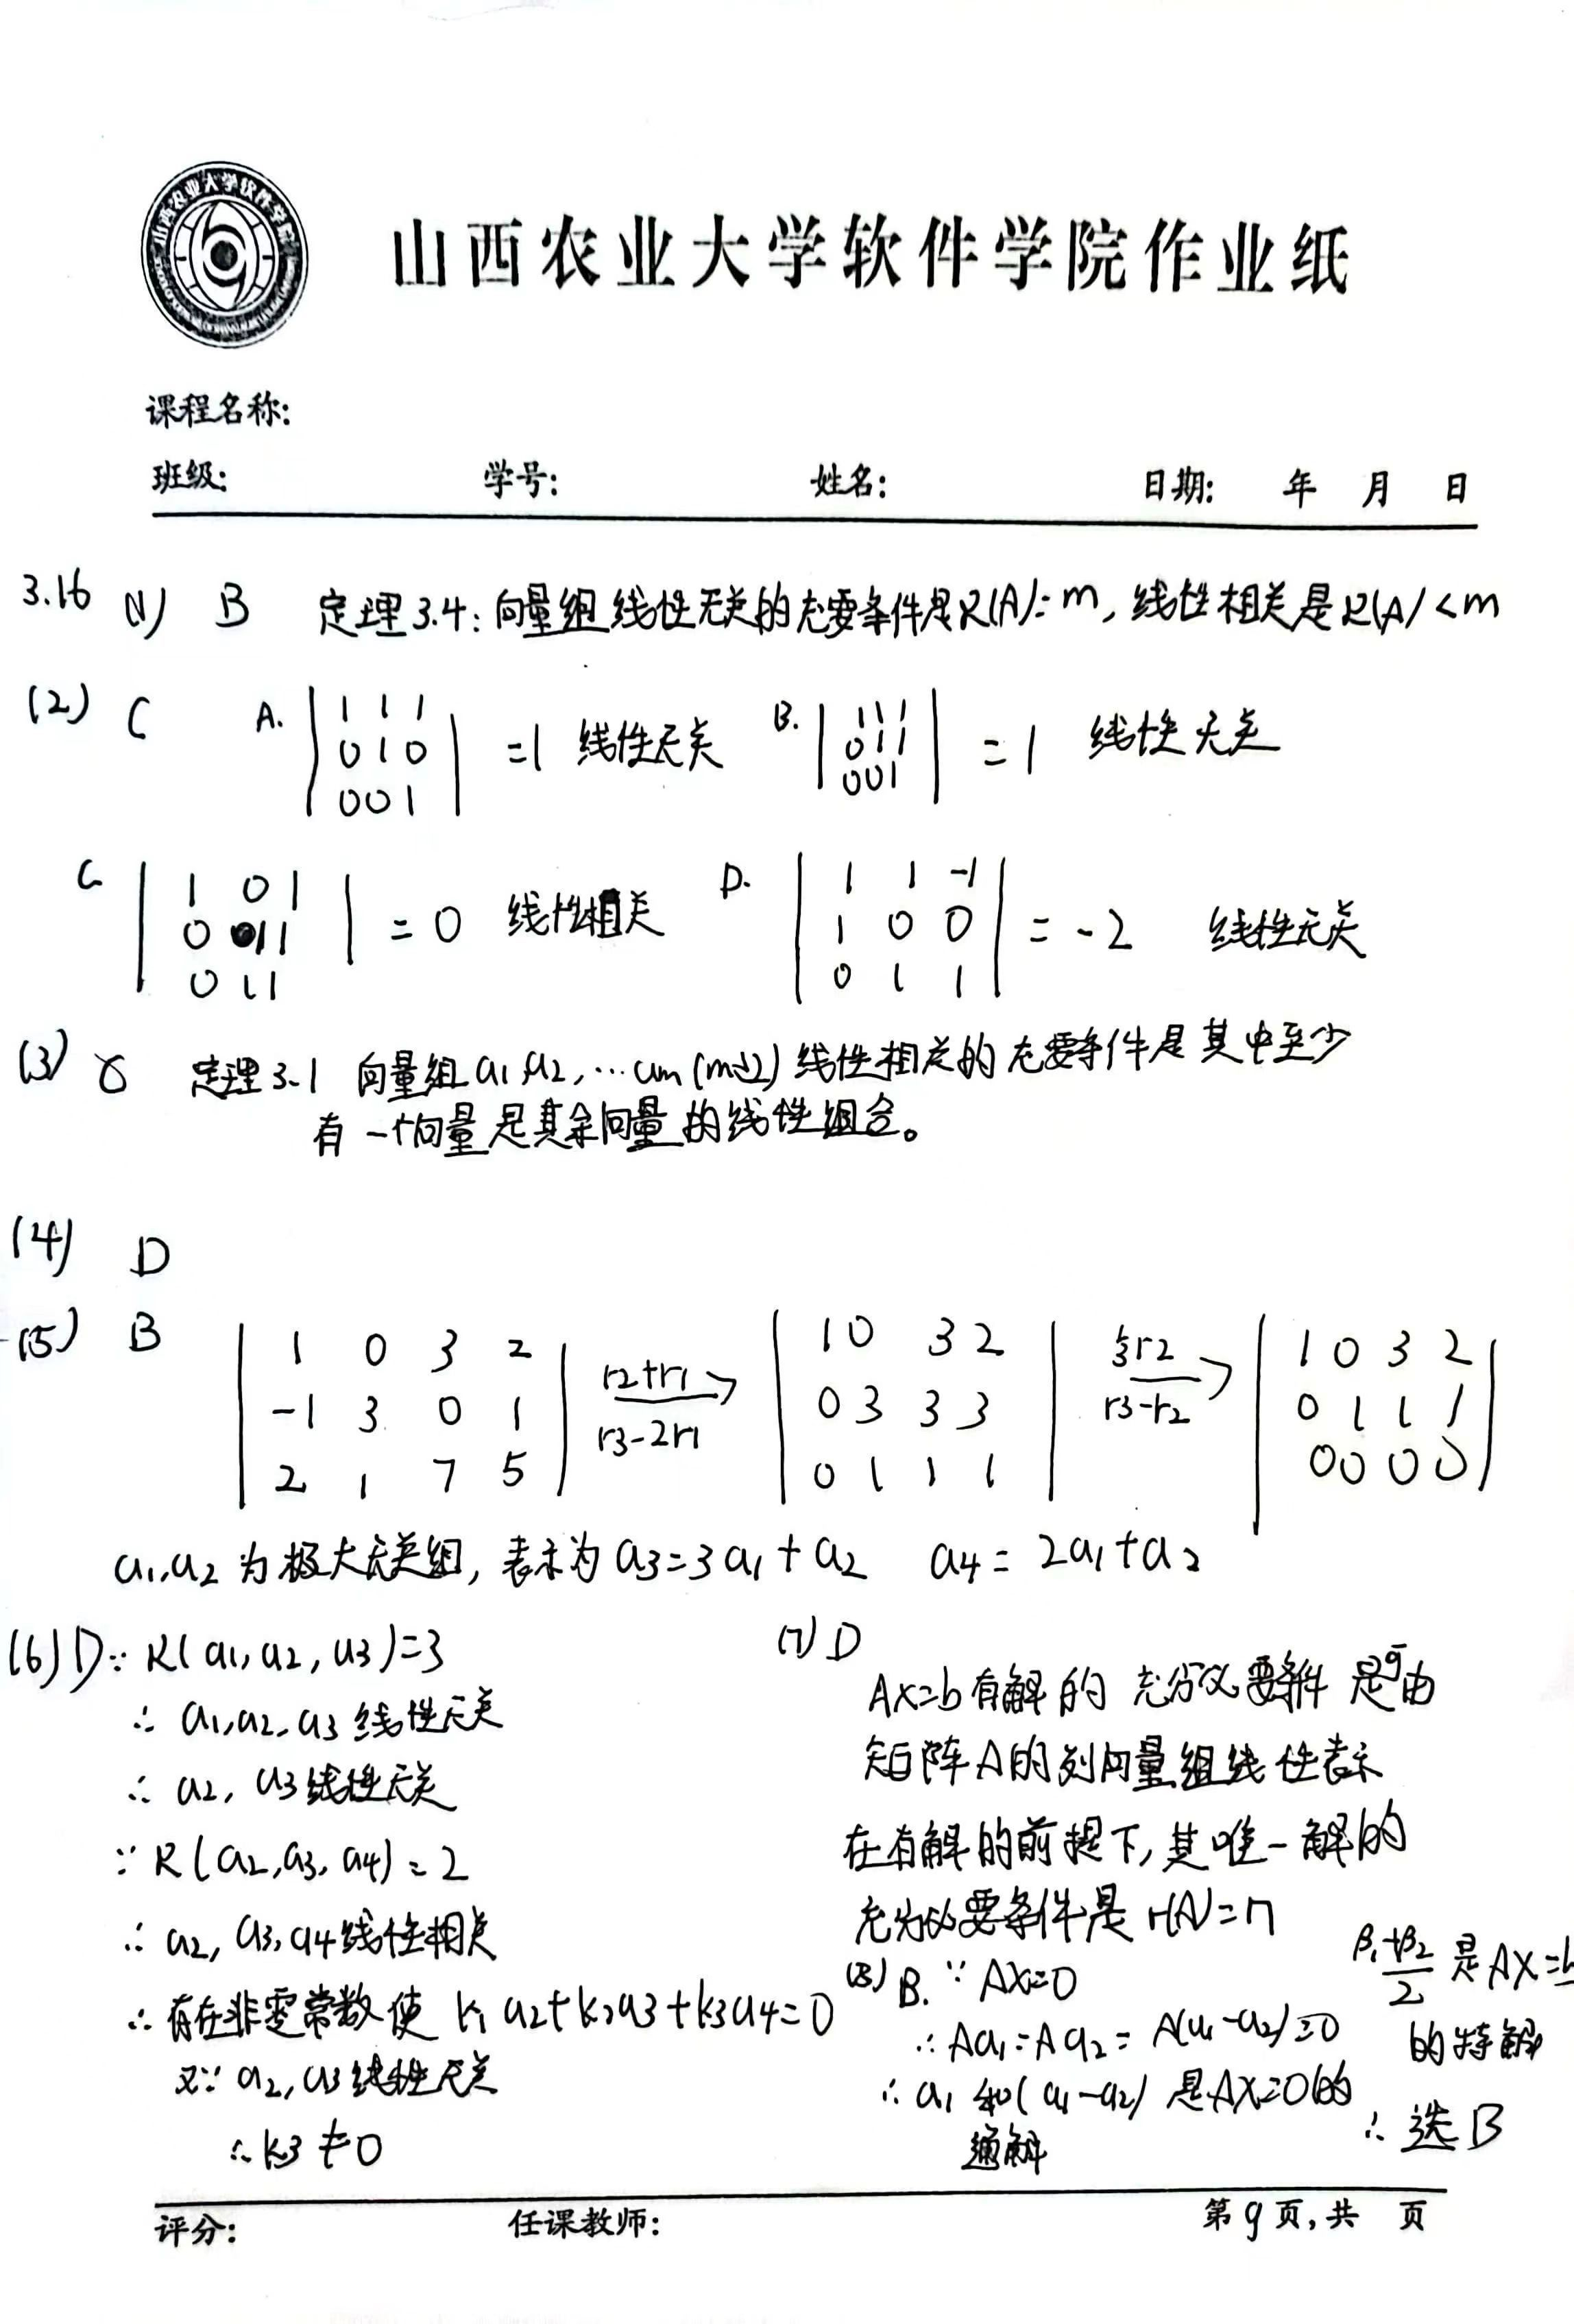 山西农业大学软件学院作业纸
课程名称:
班级: 学号: 姓名: 日期: 年 月 日
3.16 (1) B 定理3.4:向量组线性无关的充要条件是R(A)=m,线性相关是R(A)<m
(2) C A. |1 1 1 =1 线性无关 B. |1 1 1 =1 线性无关
0 1 0 0 1 1
0 0 1| 0 0 1|
C. |1 0 1 =0 线性相关 D. |1 1 -1 =-2 线性无关
0 1 1 1 0 0
0 1 1| 0 1 1|
(3) 定理3.1 向量组a1,a2,…am(m≥2)线性相关的充要条件是其中至少
有一个向量是其余向量的线性组合。
(4) D
(5) B
|1 0 3 2 r2+r1 |1 0 3 2 ⅓r2 |1 0 3 2
-1 3 0 1 → 0 3 3 3 → 0 1 1 1
2 1 7 5| r3-2r1 0 1 1 1| r3-r2 0 0 0 0|
a1,a2为极大无关组,表示为a3=3a1+a2 a4=2a1+a2
(6) D ∵R(a1,a2,a3)=3
∴a1,a2,a3线性无关
∴a2,a3线性无关
∵R(a2,a3,a4)=2
∴a2,a3,a4线性相关
∴存在非零常数使k1a2+k2a3+k3a4=0
又∵a2,a3线性无关
∴k3≠0
(7) D
Ax=b有解的充分必要条件是可由
矩阵A的列向量组线性表示
在有解的前提下,其唯一解的
充分必要条件是r(A)=n
(8) B. ∵AX=0
∴Aa1=Aa2=A(a1-a2)=0
∴a1和(a1-a2)是AX=0的
通解
β1+β2/2 是AX=b
的特解
∴选B
评分: 任课教师: 第9页,共 页